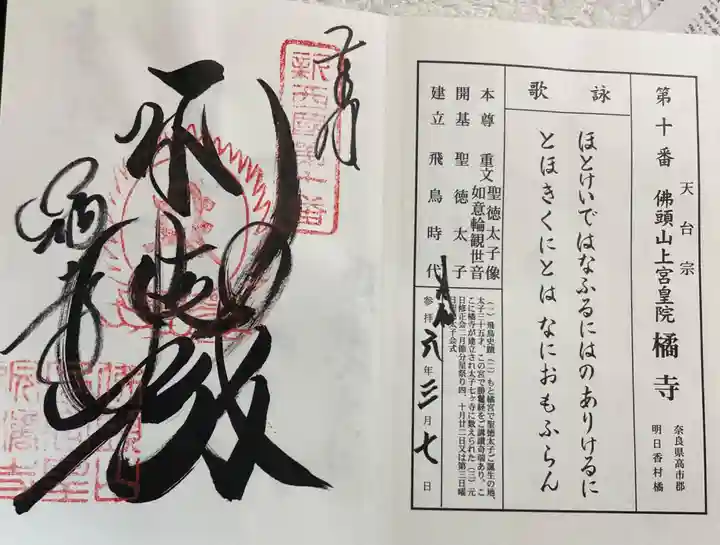 第十番 天台宗 佛頭山上宮皇院 橘寺
奈良県高市郡
明日香村橘
詠歌
ほとけいではなふるにはのありけるに
とほきくにとは なにおもふらん
本尊 重文 聖徳太子像
如意輪観世音
開基 聖徳太子
建立 飛鳥時代
(一)飛鳥史蹟(二)もと橘宮で聖徳太子ご誕生の地、
太子三十五才、この宮で勝鬘経をご講讃奇瑞あり。こ
こに橘寺が建立され太子七ヶ寺に数えられた(三)元
日修正会二月節分星祭り四、十月廿二日又は第三日曜
日聖徳太子会式
参拝 元年三月七日
新西國第十番
橘寺